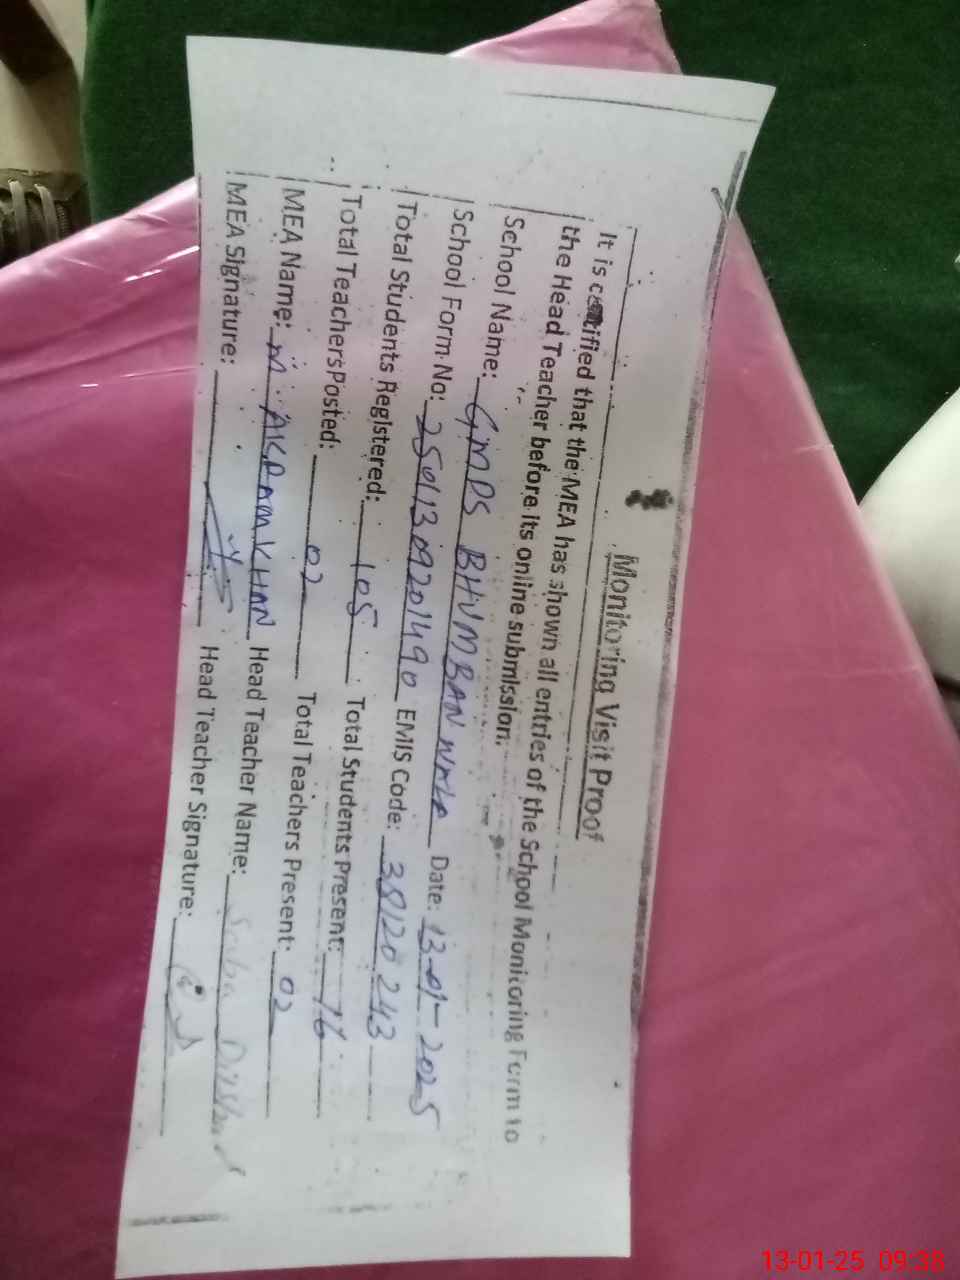 Monitoring Visit Proof
It is certified that the MEA has shown all entries of the School Monitoring Form to
the Head Teacher before its online submission.
School Name: GMPS BHUMBAN WALA Date: 13-01-2025
School Form No: 25011309201490 EMIS Code: 38120243
Total Students Registered: 105 Total Students Present: 76
Total Teachers Posted: 02 Total Teachers Present: 02
MEA Name: M. AKRAM KHAN Head Teacher Name: Saba Dilshad
MEA Signature: Head Teacher Signature:
13-01-25 09:38